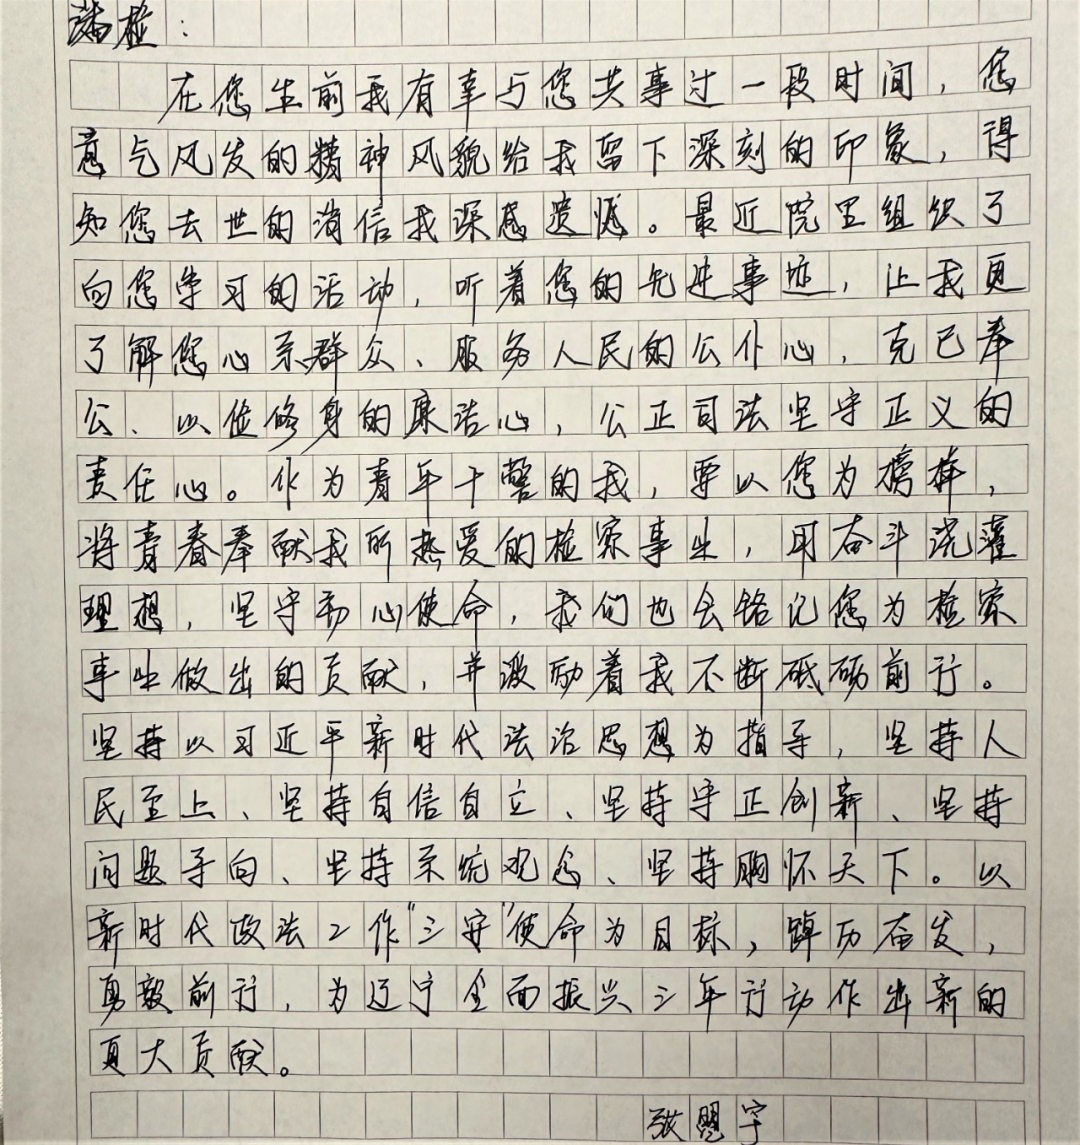 潘检:
在您生前我有幸与您共事过一段时间,您
意气风发的精神风貌给我留下深刻的印象,得
知您去世的消信我深感遗憾。最近院里组织了
向您学习的活动,听着您的先进事迹,让我更
了解您心系群众、服务人民的公仆心,克己奉
公、以俭修身的廉洁心,公正司法坚守正义的
责任心。作为青年干警的我,要以您为榜样,
将青春奉献我所热爱的检察事业,用奋斗浇灌
理想,坚守初心使命,我们也会铭记您为检察
事业做出的贡献,并激励着我不断砥砺前行。
坚持以习近平新时代法治思想为指导,坚持人
民至上、坚持自信自立、坚持守正创新、坚持
问题导向、坚持系统观念、坚持胸怀天下。以
新时代政法工作“三守”使命为目标,踔厉奋发,
勇毅前行,为辽宁全面振兴三年行动作出新的
更大贡献。
张宇